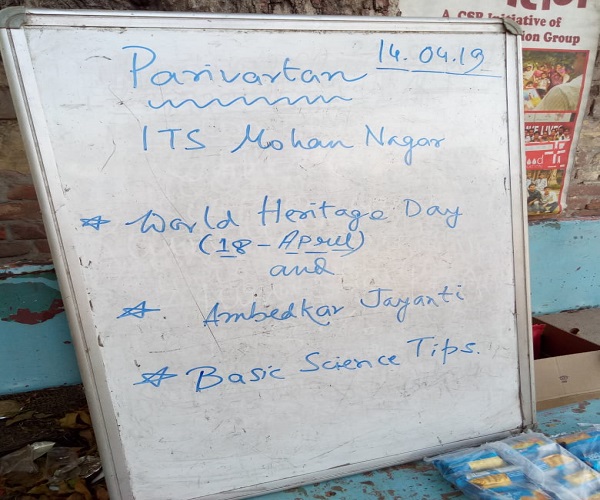 A CSR Initiative of
ion Group
14.04.19
Parivartan
ITS Mohan Nagar
World Heritage Day
(18 - April)
and
Ambedkar Jayanti
Basic Science Tips.